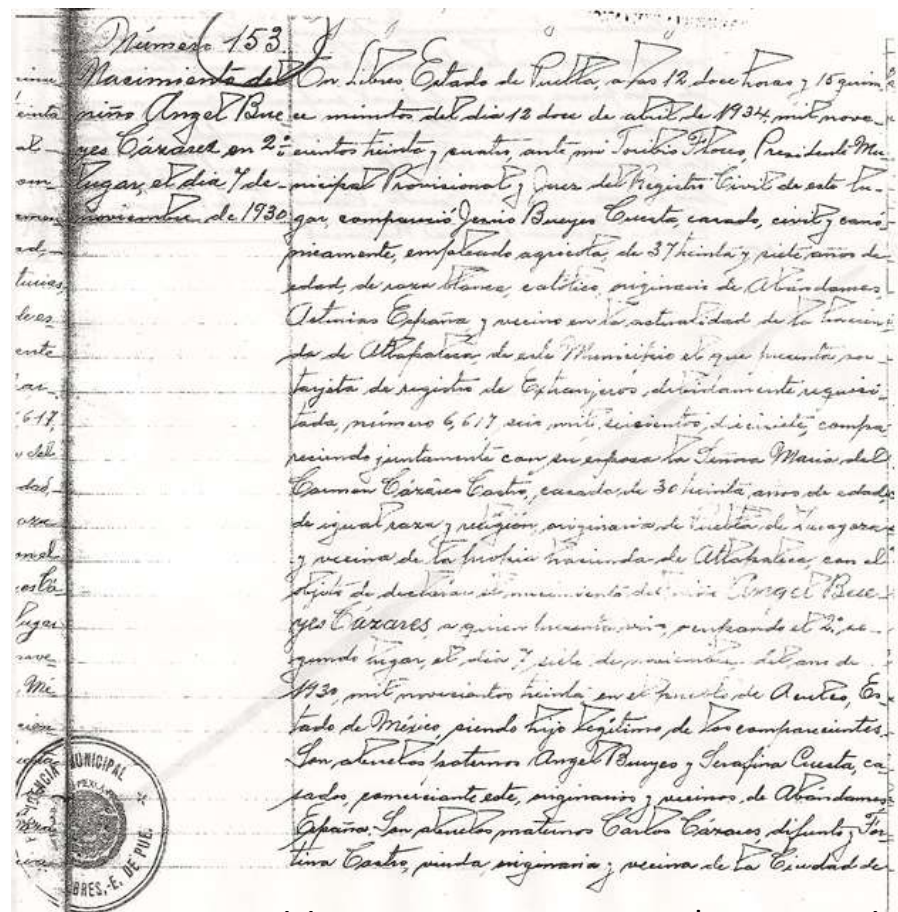 Número 153
Nacimiento del
niño Angel Bue
yes Cázares en 2º
lugar, el día 7 de
noviembre de 1930
En Libres Estado de Puebla, a las 12 doce horas y 15 quin
ce minutos del día 12 doce de abril de 1934, mil nove-
cientos treinta y cuatro, ante mí Toribio Flores, Presidente Mu-
nicipal Provisional y Juez del Registro Civil de este lu-
gar, compareció Jesús Bueyes Cuesta, casado, civil y canó
nicamente, empleado agrícola, de 37 treinta y siete años de
edad, de raza blanca, católico, originario de Abándames,
Asturias España, y vecino en la actualidad de la hacien
da de Atlapaleca, de este Municipio el que presenta su
tarjeta de registro de Extranjeros, debidamente requisi-
tada, número 6,617 seis mil, seiscientos, diecisiete, compa
reciendo juntamente con su esposa la Señora María del
Carmen Cázares Castro, casada, de 30 treinta años de edad,
de igual raza y religión, originaria de Puebla de Zaragoza
y vecina de la propia hacienda de Atlapaleca, con el
objeto de declarar el nacimiento del niño Angel Bue-
yes Cázares, a quien presenta vivo, ocupando el 2º, se-
gundo lugar, el día 7 siete de noviembre del año de
1930, mil novecientos treinta en el pueblo de Aculco, Es-
tado de México, siendo hijo legítimo de los comparecientes.
Son abuelos paternos Angel Bueyes y Serafina Cuesta, ca-
sados, comerciante este, originarios y vecinos de Abándames
España. Son abuelos maternos Carlos Cázares, difunto y
Castro, viuda, originaria y vecina de la Ciudad de
617,
dad,
lugar
MUNICIPAL
BRES,-E. DE PUE.